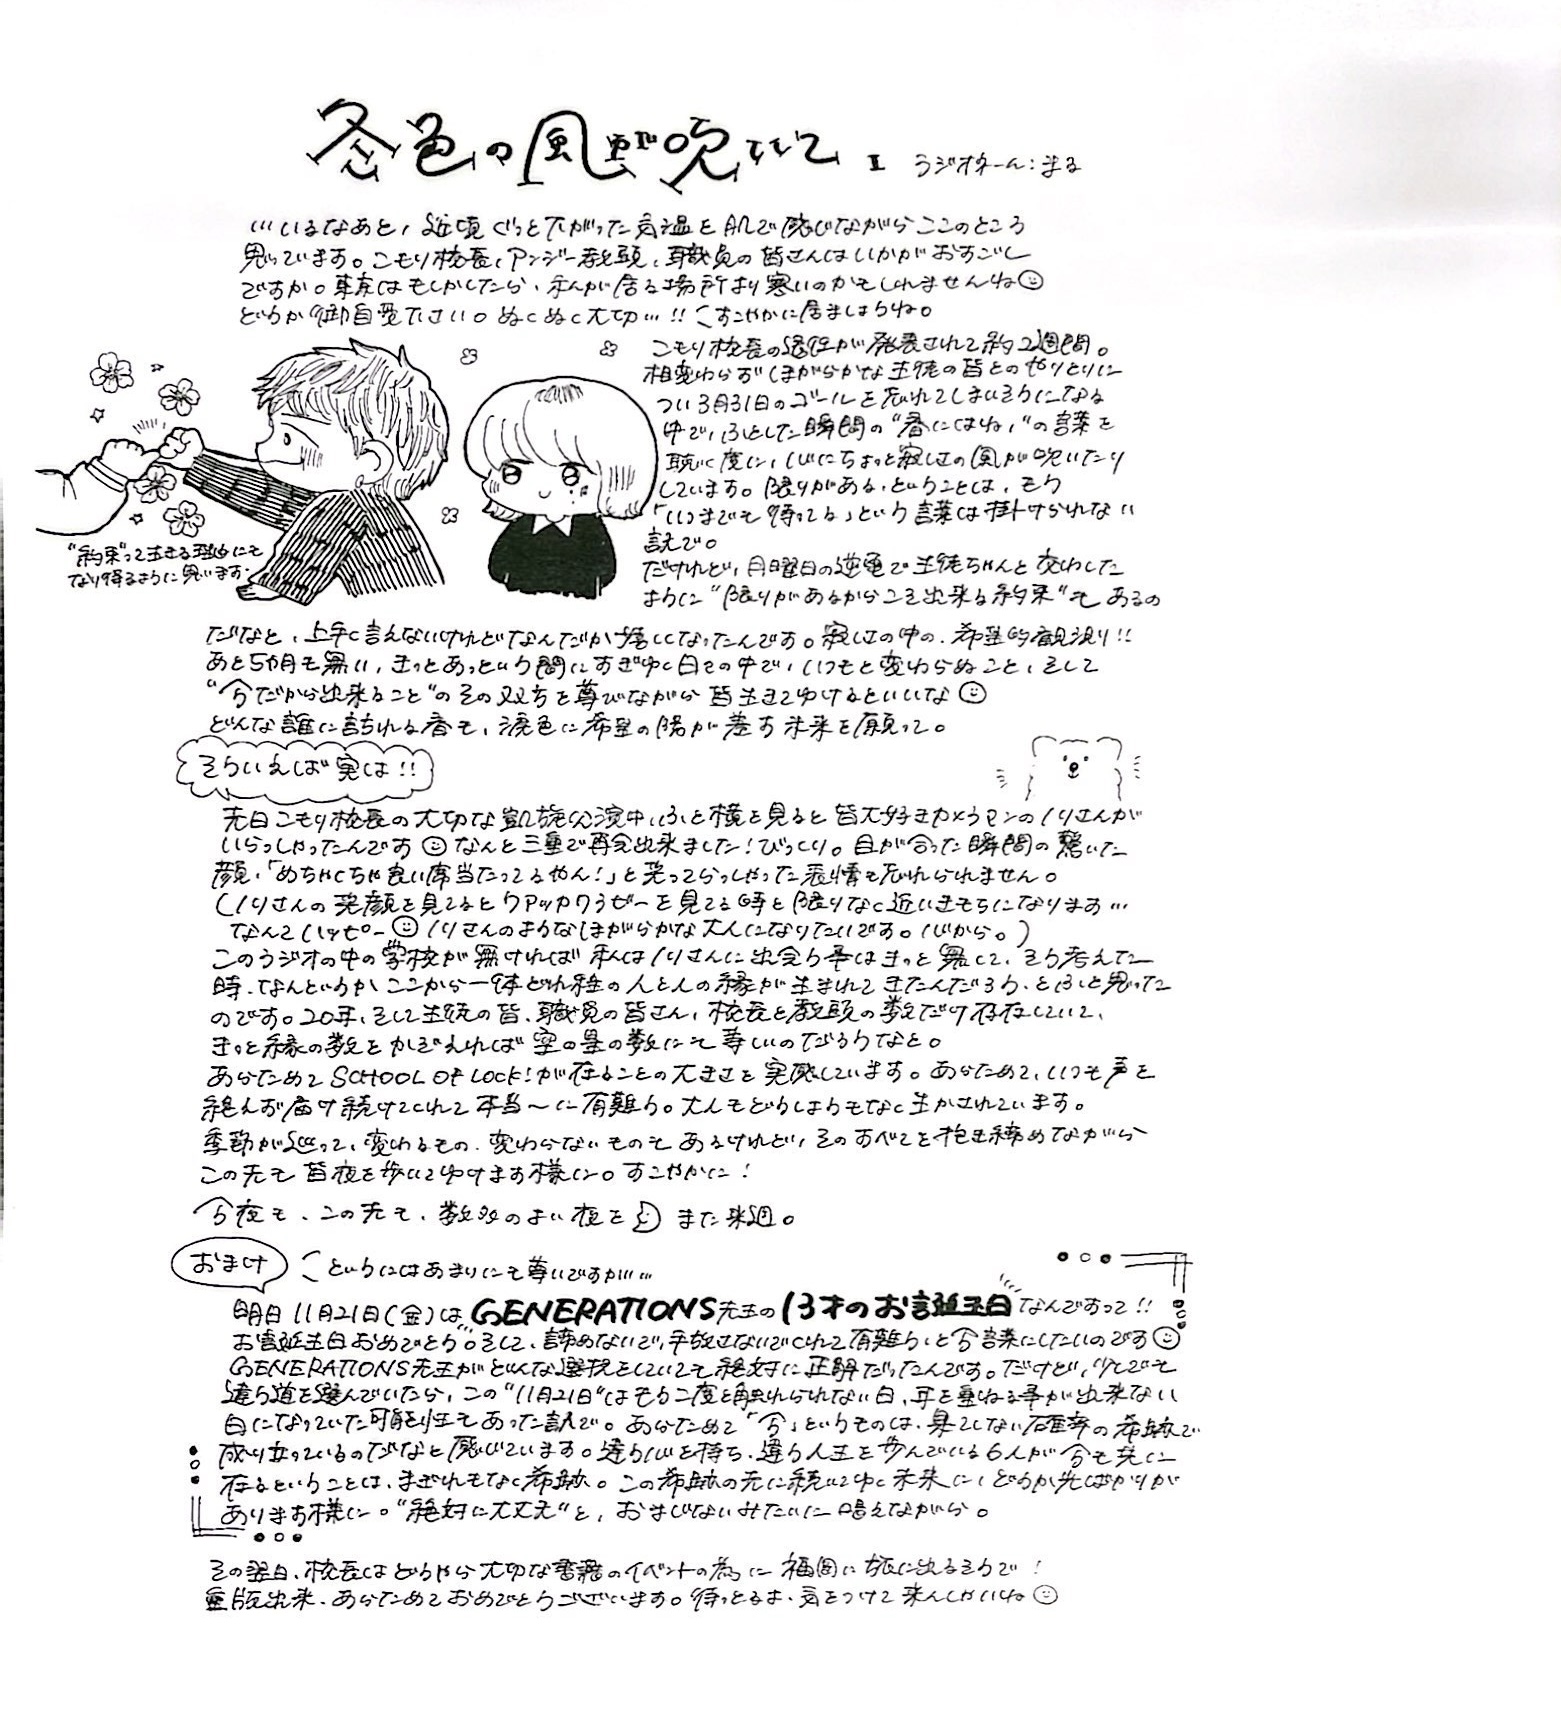 冬色の風が吹いて。 ラジオネーム:まる
…いるなあと、近頃ぐっと下がった気温を肌で感じながらここのところ
思っています。こもり校長、アンジー教頭、職員の皆さんはいかがおすごし
ですか。東京はもしかしたら、私が居る場所より寒いのかもしれませんね
どうか御自愛下さい。ぬくぬく大切…!! すこやかに居ましょうね。
こもり校長の退任が発表されて約2週間。
相変わらずほがらかな生徒の皆とのやりとりに
つい3月31日のゴールを忘れてしまいそうになる
中で、ふとした瞬間の"春にはね、"の言葉を
聴く度に、心にちょっと寂しさの風が吹いたり
しています。限りがある、ということは、もう
「いつまでも待ってる」という言葉は掛けられない
訳で。
だけれど、月曜日の逆電で生徒ちゃんと交わした
ように"限りがあるからこそ出来る約束"もあるの
"約束"って生きる理由にも
なり得るように思います。
だなと、上手く言えないけれどなんだか嬉しくなったんです。寂しさの中の、希望的観測!!
あと5ヵ月も無い、きっとあっという間にすぎゆく日々の中で、いつもと変わらぬこと、そして
"今だから出来ること"のその双方を尊びながら皆生きてゆけるといいな
どんな誰に訪れる春も、渡色に希望の陽が差す未来を願って。
そういえば実は!!
先日こもり校長の大切な凱旋公演中、ふと横を見ると皆大好きカメラマンのノリさんが
いらっしゃったんです なんと三重で再会出来ました!びっくり。目が合った瞬間の驚いた
顔、「めちゃくちゃ良い席当たってるやん!」と笑ってらっしゃった表情も忘れられません。
(ノリさんの笑顔を見てるとクアッカワラビーを見てる時と限りなく近いきもちになります…
なんてハッピー ノリさんのようなほがらかな大人になりたいです。心から。)
このラジオの中の学校が無ければ私はノリさんに出会う事はきっと無くて、そう考えた
時、なんというか ここから一体どれ程の人と人の縁が生まれてきたんだろう、とふと思った
のです。20年、そして生徒の皆、職員の皆さん、校長と教頭の数だけ存在していて、
きっと縁の数をかぞえれば空の星の数にも等しいのだろうなと。
あらためてSCHOOL OF LOCK!が在ることの大きさを実感しています。あらためて、いつも声を
絶えず届け続けてくれて本当〜に有難う。大人もどうしようもなく生かされています。
季節が巡って、変わるもの、変わらないものもあるけれど、そのすべてを抱き締めながら
この先も皆夜を歩いてゆけます様に。すこやかに!
今夜も、この先も、数多のよい夜を また来週。
おまけ というにはあまりにも尊いですが……
明日11月21日(金)はGENERATIONS先生の13才のお誕生日なんですって!!
お誕生日おめでとう。そして、諦めないで、手放さないでくれて有難う、と今言葉にしたいのです
GENERATIONS先生がどんな選択をしていても絶対に正解だったんです。だけど、少しでも
違う道を選んでいたら、この"11月21日"はもう二度と触れられない日、耳を重ねる事が出来ない
日になっていた可能性もあった訳で。あらためて「今」というものは、果てしない確率の希跡で
成り立っているのだなと感じています。違う心を持ち、違う人生を歩んでいる6人が今も共に
在るということは、まぎれもなく希跡。この希跡の先に続いてゆく未来に、どうか光ばかりが
あります様に。"絶対に大丈夫"と、おまじないみたいに唱えながら。
その翌日、校長はどうやら大切な書籍のイベントの為に福岡に旅に出るそうで!
重版出来、あらためておめでとうございます。待っとるよ、気をつけて来んしゃいね